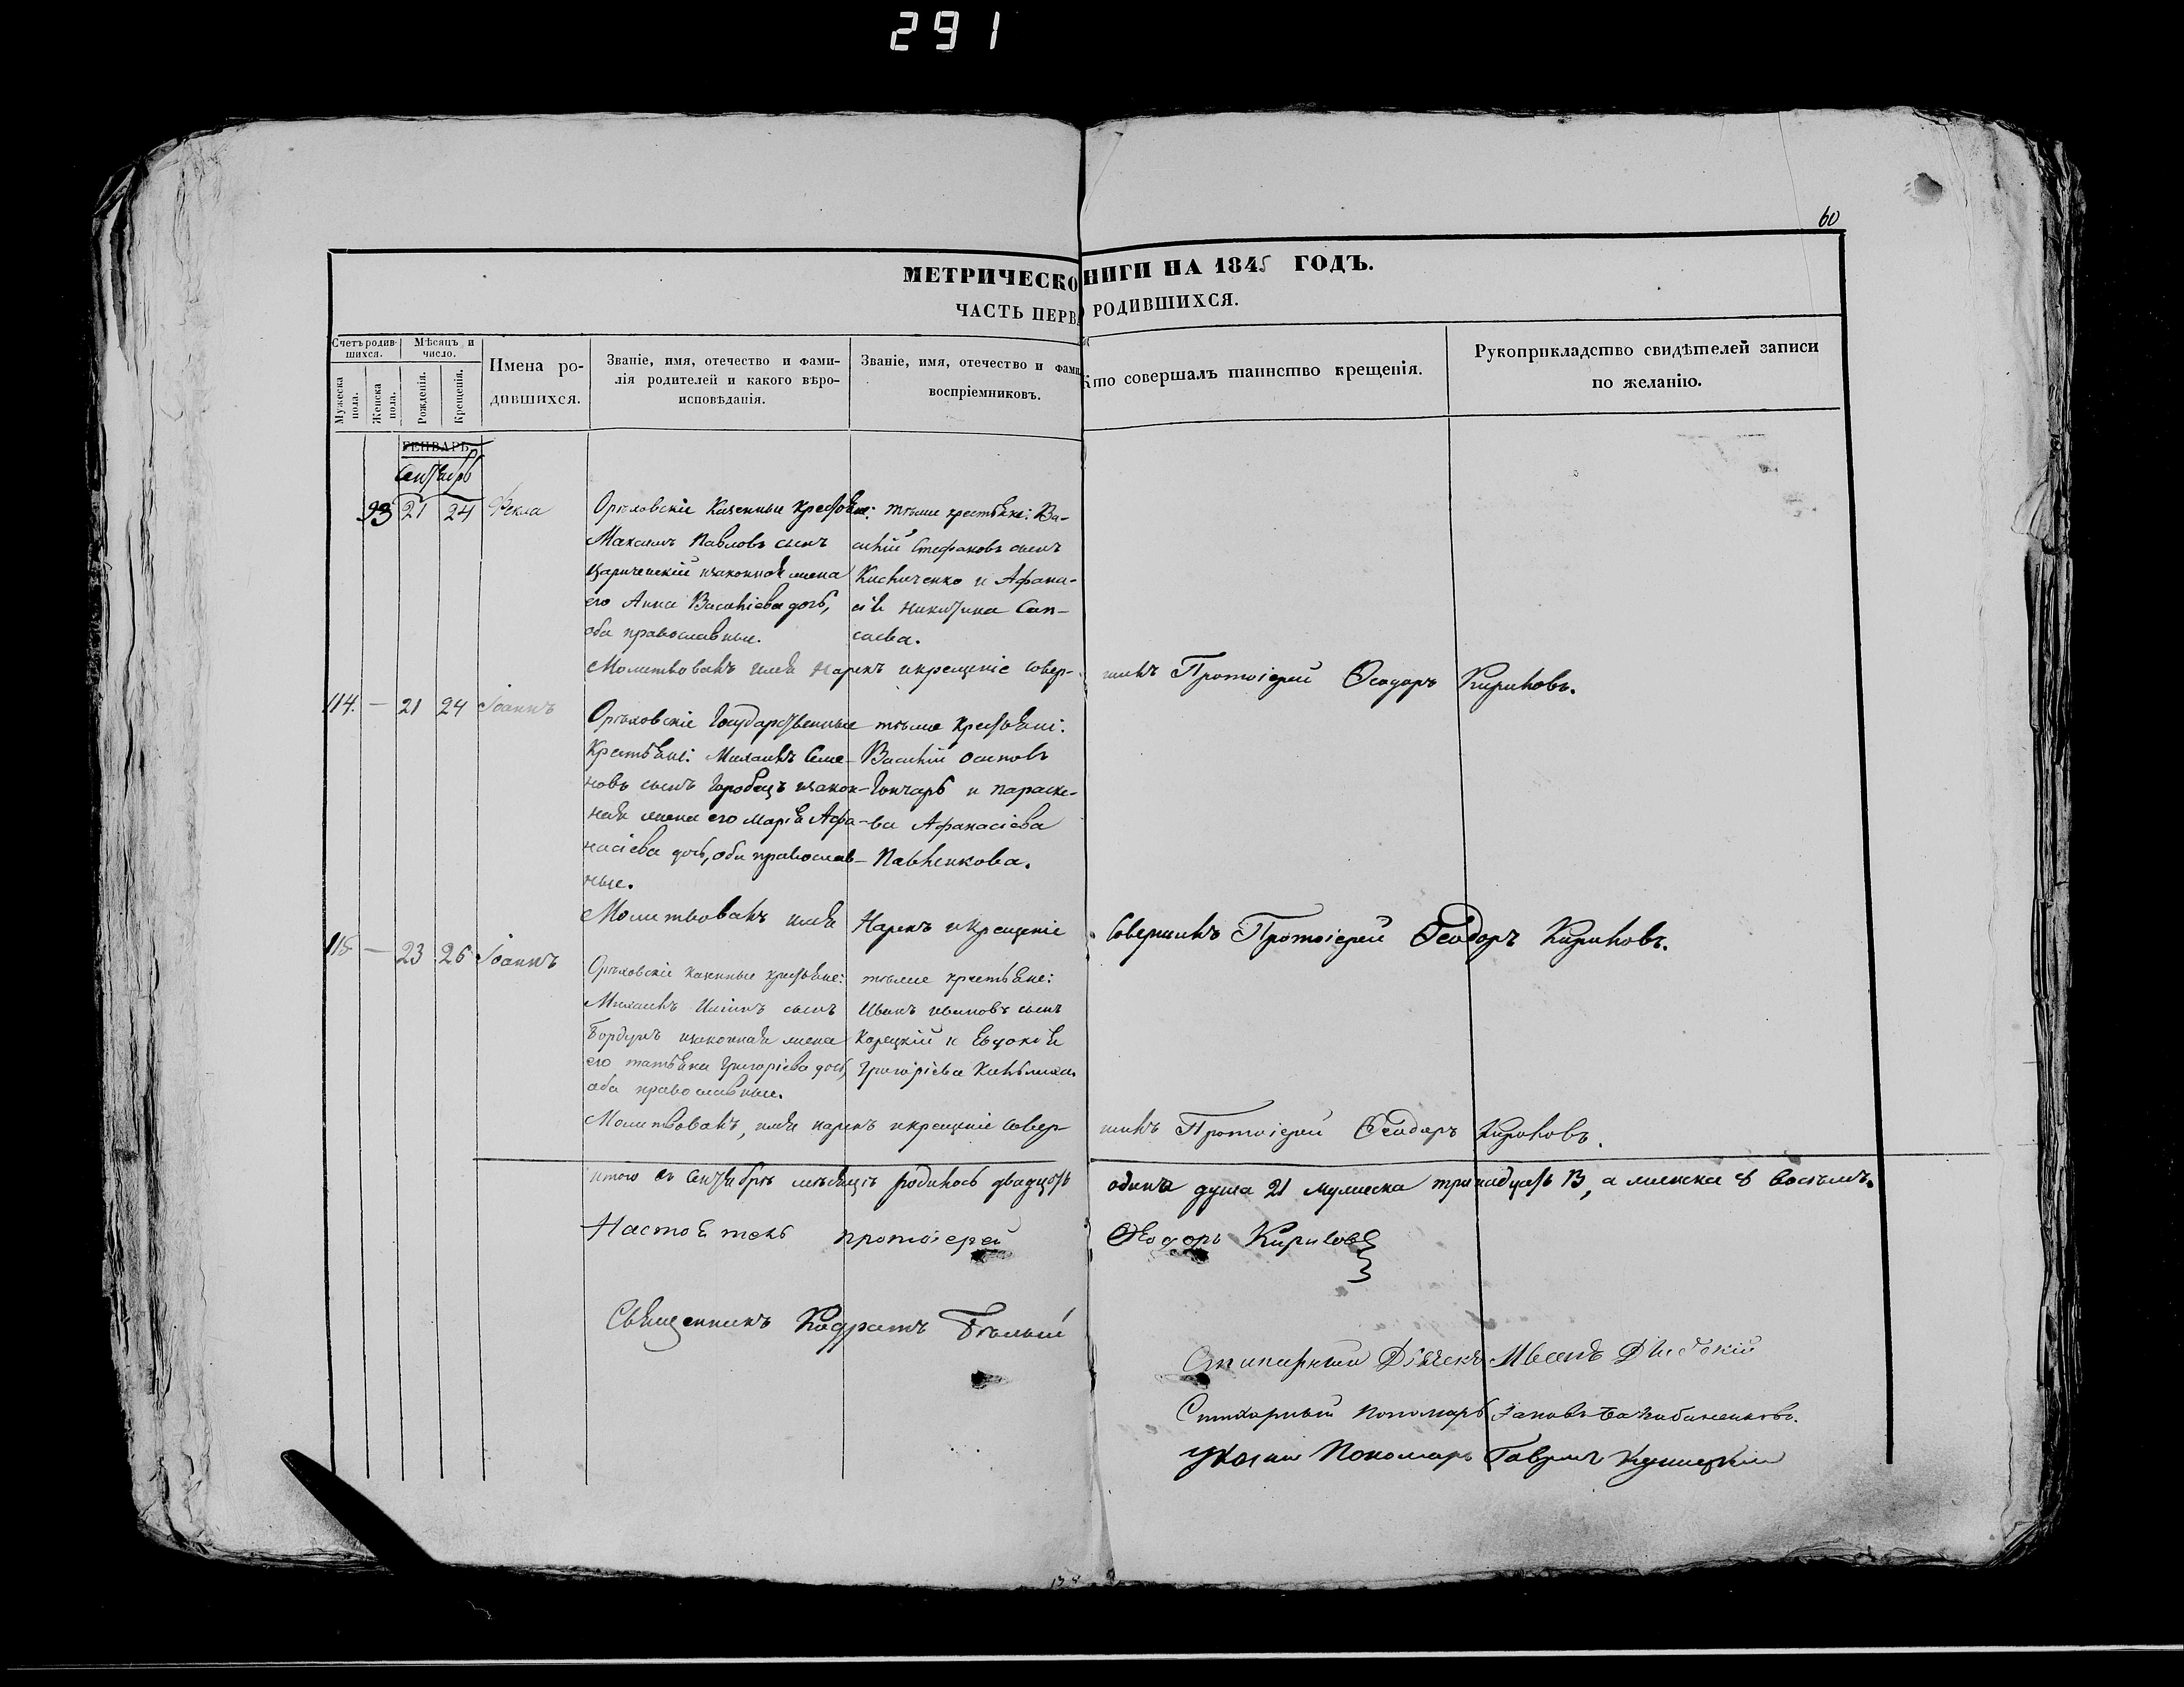 291
60
МЕТРИЧЕСКО НИГИ НА 1845 ГОДЪ.
ЧАСТЬ ПЕРВА РОДИВШИХСЯ.
Счетъ родив-
шихся.
Мѣсяцъ и
число.
Мужеска
пола.
Женска
пола.
Рожденія.
Крещенія.
Имена ро-
дившихся.
Званіе, имя, отечество и фами-
лія родителей и какого вѣро-
исповѣданія.
Званіе, имя, отечество и фами
воспріемниковъ.
Кто совершалъ таинство крещенія.
Рукоприкладство свидѣтелей записи
по желанію.
ГЕНВАРЬ
Сентябрь
93 21 24 Фекла
Орѣховскіе Казенные крестьяне:
Максимъ Павловъ сынъ
Царичевскій изаконная жена
его Анна Василіева дочь,
оба православные.
тѣже крестьяне: Ва-
силій Стефановъ сынъ
Кисличенко и Афана-
сія Никитина Сап-
саева.
Молитвовалъ имя нарекъ икрещеніе совер- шилъ Протоіерей Ѳеодоръ Кириловъ.
114. — 21 24 Іоаннъ
Орѣховскіе Государственные
Крестьяне: Михаилъ Семе-
новъ сынъ Горобецъ изакон-
ная жена его Марія Афа-
насіева дочь, оба православ-
ные.
тѣже Крестьяне:
Василій Осиповъ
Гончаръ и Параске-
ва Афанасіева
Павленкова.
Молитвовалъ имя Нарекъ икрещеніе Совершилъ Протоіерей Ѳеодоръ Кириловъ.
115 — 23 26 Іоаннъ
Орѣховскіе казенные крестьяне:
Михаилъ Иліинъ сынъ
Бордунъ изаконная жена
его татьяна Григоріева дочь,
оба православные.
тѣже крестьяне:
Иванъ Ивановъ сынъ
Корецкій и Евдокія
Григоріева
Молитвовалъ, имя нарекъ икрещеніе совер- шилъ Протоіерей Ѳеодоръ Кириловъ.
итого въ Сентябрѣ мѣсяцѣ родилось двадцать одна душа 21 мужеска тринадцать 13, а женска 8 восемь.
Настоятель протоіерей Ѳеодоръ Кириловъ
Священникъ Кодратъ Бѣлый
Стихарный Дьячекъ Иванъ
Стихарный Пономарь
Указный Пономарь Гавриилъ